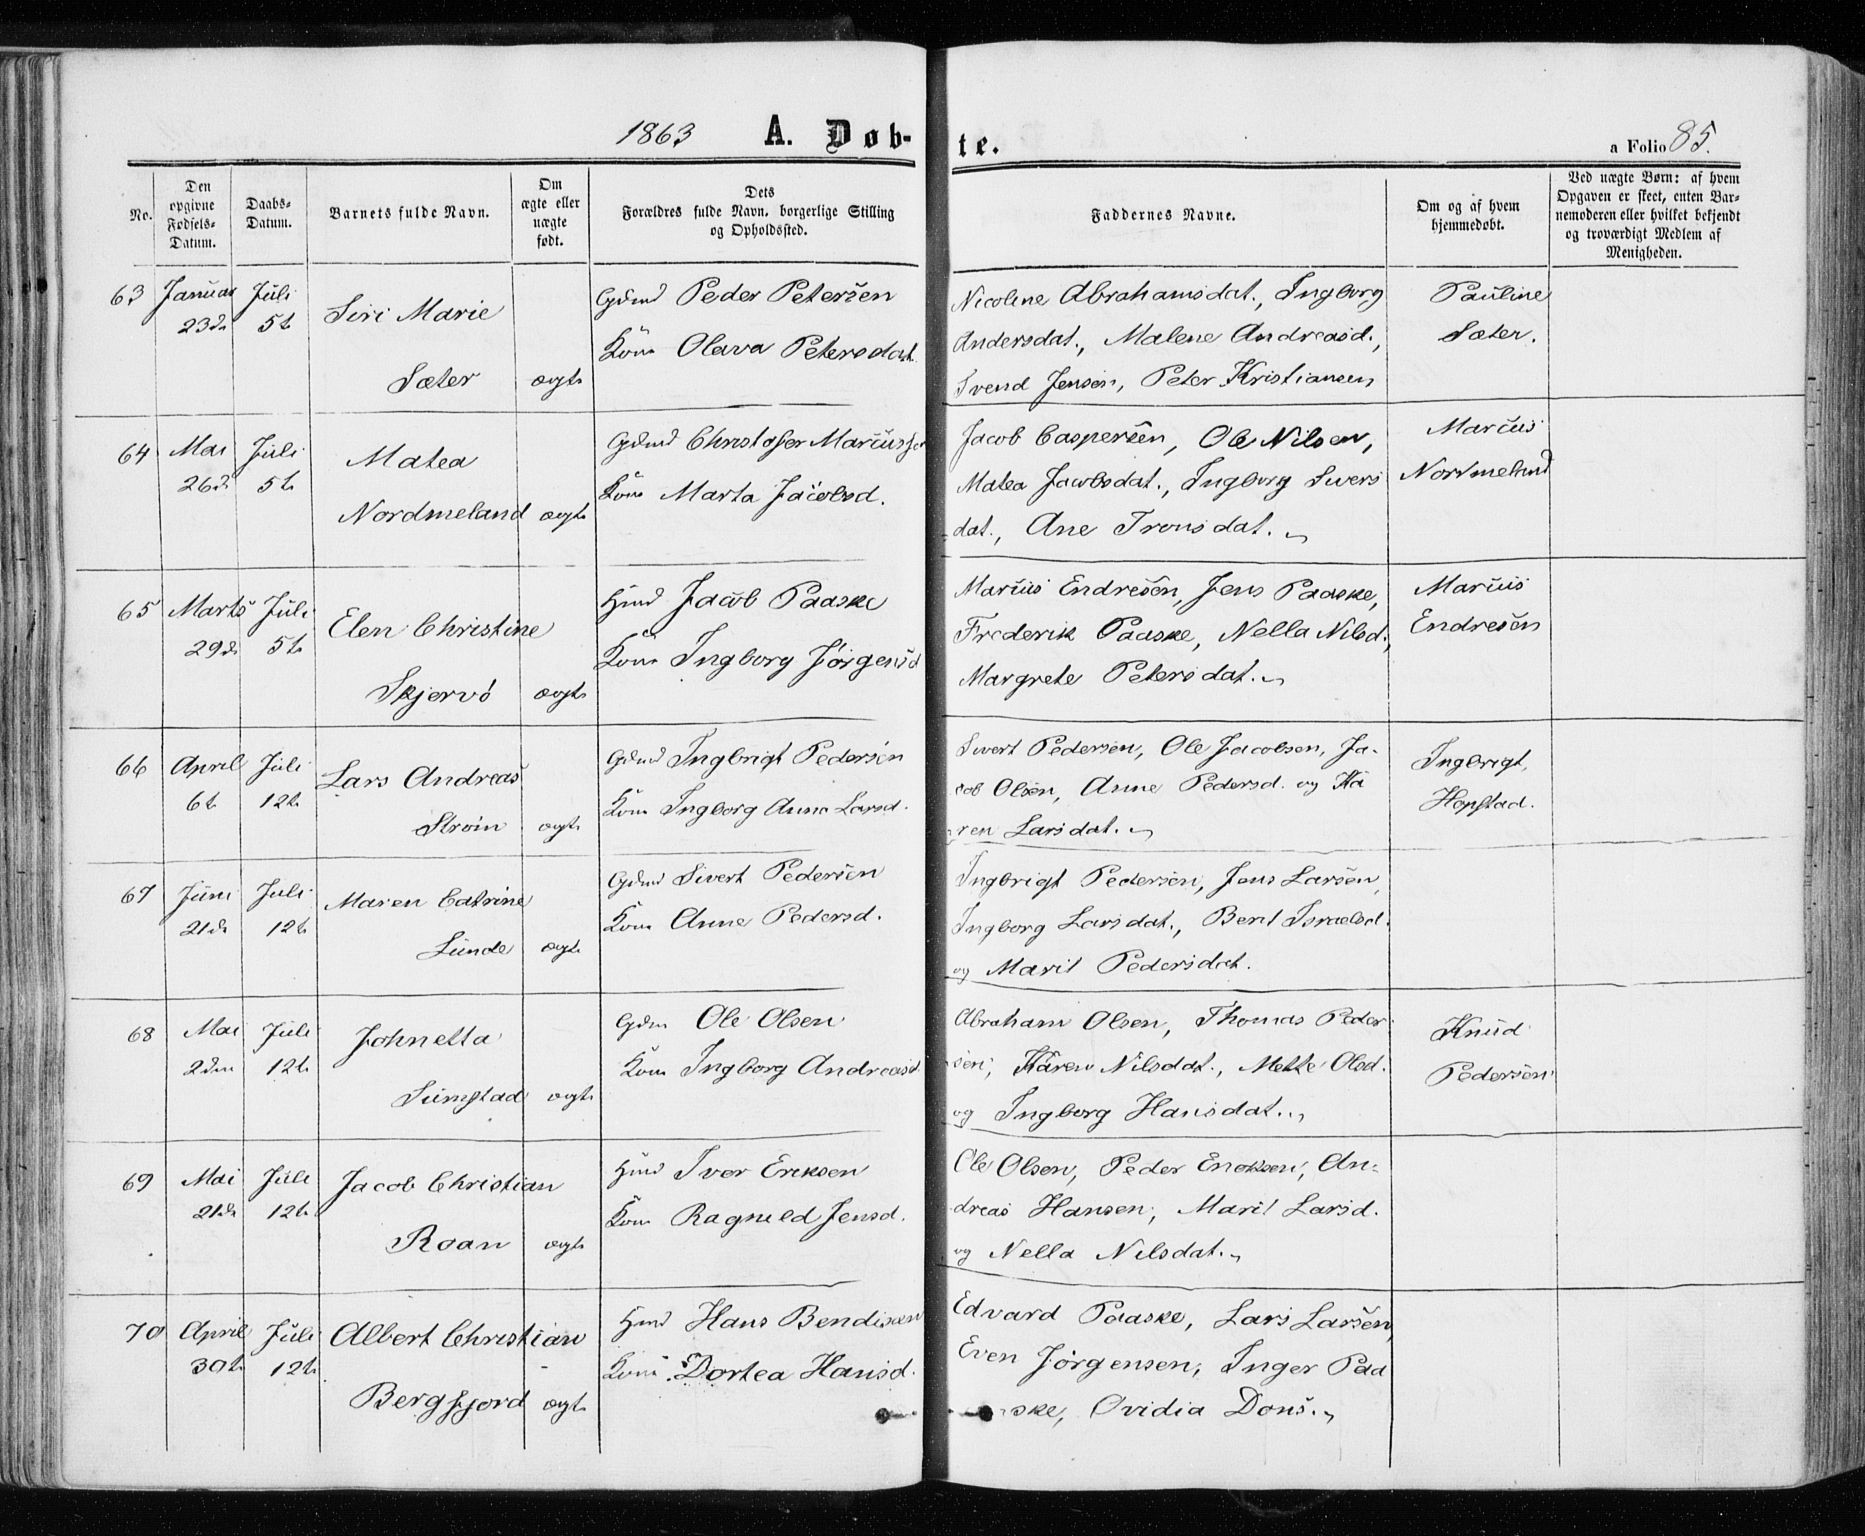 1863 A. Døb-
te. a Folio 85.
No.
Den
opgivne
Fødsels-
Datum.
Daabs-
Datum.
Barnets fulde Navn.
Om
ægte eller
uægte
født.
Dets
Forældres fulde Navn, borgerlige Stilling
og Opholdssted.
Faddernes Navne.
Om og af hvem
hjemmedøbt.
Ved uægte Børn: af hvem
Opgaven er skeet, enten Bar-
nemoderen eller hvilket bekjendt
og troværdigt Medlem af
Menigheden.
63
Januar
23d
Juli
5t
Siri Marie
Sæter
ægt
Gdmd Peder Petersen
Kone Olava Petersdat.
Nicoline Abrahamsdat., Ingborg
Andersdat., Malene Andreasd.,
Svend Jensen, Peter Kristiansen
Pauline
Sæter.
64
Mai
26d
Juli
5t
Matea
Nordmeland
ægt
Gdmd Christofer Marcus
Kone Marta Jacobsd.
Jacob Caspersen, Ole Nilsen,
Matea Jacobsdat., Ingborg Sivers
dat., Ane Tronsdat.
Marius
Nordmeland
65
Marts
29d
Juli
5t
Elen Christine
Skjervö
ægt
Hmd Jacob Paaske
Kone Ingborg Jörgensd
Marius Endresen, Jens Paaske,
Frederik Paaske, Nella Nilsd.,
Margrete Petersdat.
Marius
Endresen
66
April
6t
Juli
12t
Lars Andreas
Strøm
ægt
Gdmd Ingbrigt Pedersen
Kone Ingborg Anna Larsd.
Sivert Pedersen, Ole Jacobsen, Ja-
cob Olsen, Anne Pedersd. og Ka
ren Larsdat.
Ingbrigt
Hopstad.
67
Juni
21d
Juli
12t
Maren Catrine
Sunde
ægt
Gdmd Sivert Pedersen
Kone Anne Pedersd.
Ingbrigt Pedersen, Jens Larsen,
Ingborg Larsdat., Berit Israelsd.
og Marit Pedersdat.
68
Mai
2den
Juli
12t
Johnetta
Sumstad
ægt
Gdm Ole Olsen
Kone Ingborg Andreasd.
Abraham Olsen, Thomas Peder
sen, Karen Nilsdat., Mette Olsd.
og Ingborg Hansdat.
Knud
Pedersen
69
Mai
21d
Juli
12t
Jacob Christian
Roan
ægt
Hmd Iver Eriksen
Kone Ragnild Jensd.
Ole Olsen, Peder Enoksen, An-
dreas Hansen, Marit Larsd.
og Nella Nilsdat.
70
April
30t
Juli
12t
Albert Christian
Bergfjord
ægt
Hmd Hans Bendixen
Kone Dortea Hansd.
Edvard Paaske, Lars Larsen,
Even Jörgensen, Inger Paa
ske, Ovidia Dons.